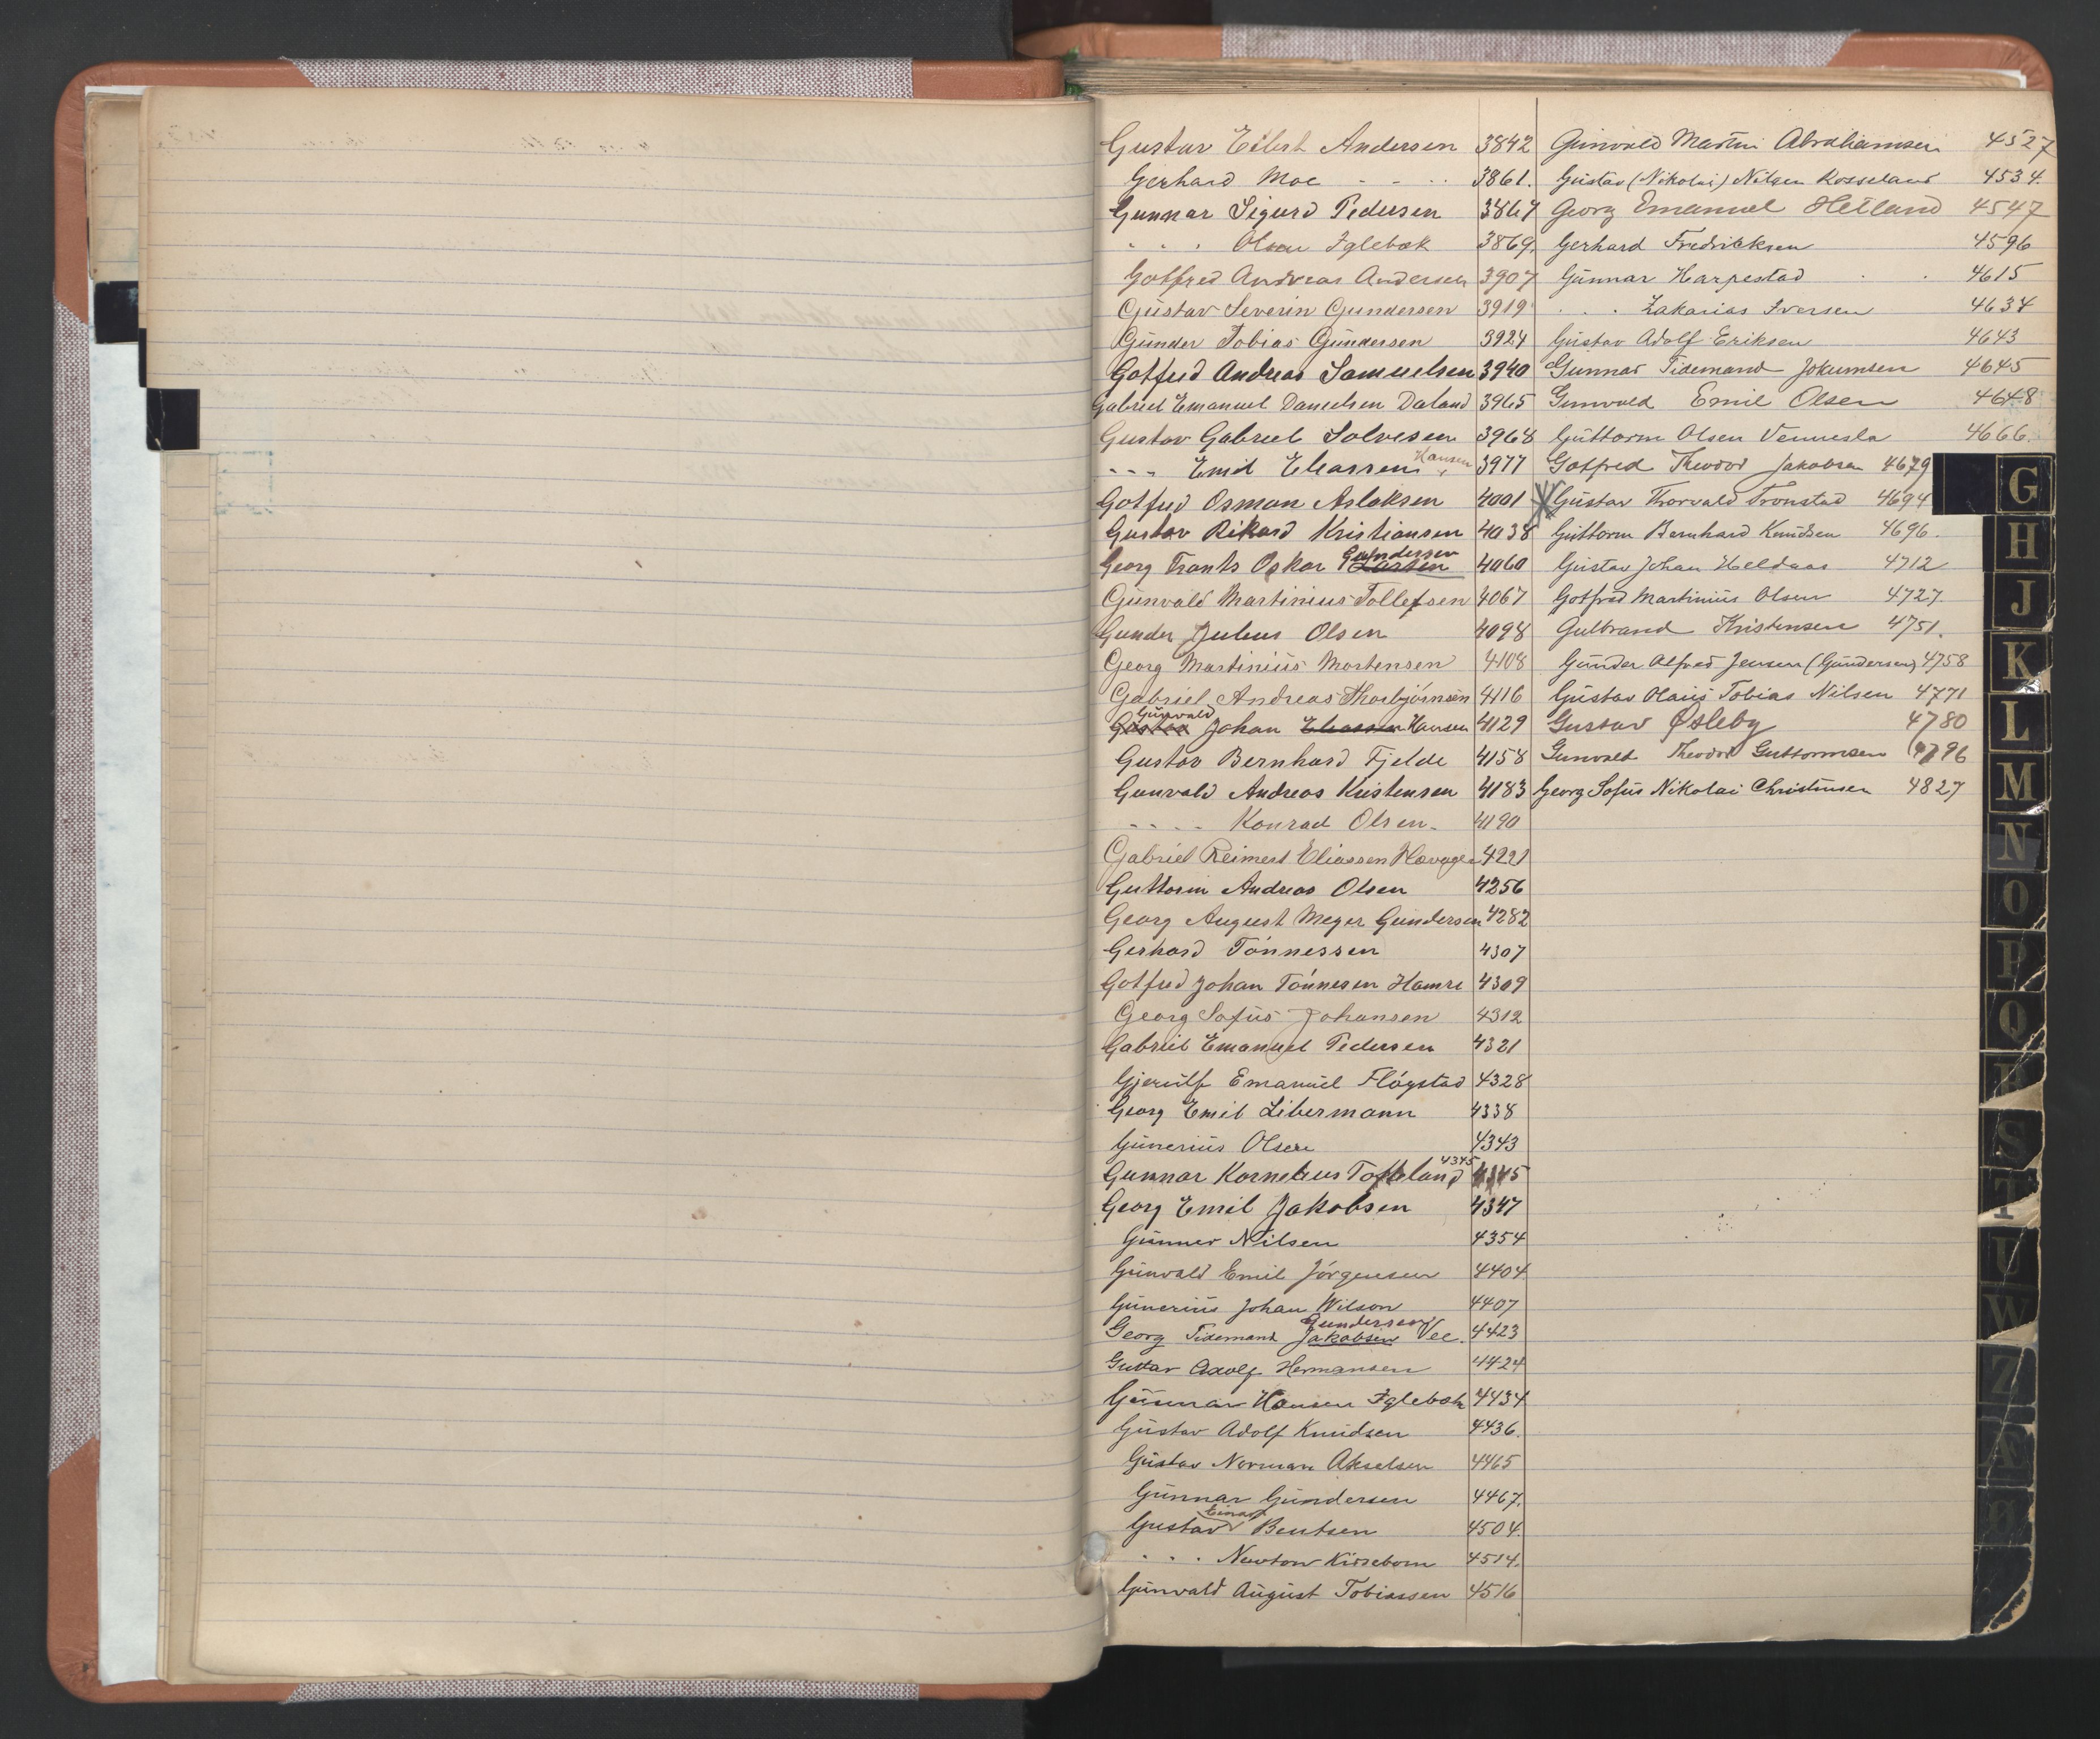 Gustav Eilert Andersen 3842
Gerhard Moe - - .. 3861.
Gunnar Sigurd Pedersen 3867
. . . Olsen Iglebæk 3869.
Gotfred Andreas Andersen 3907
Gustav Severin Gundersen 3919
Gunder Tobias Gundersen 3924
Gotfred Andreas Samuelsen 3940
Gabriel Emanuel Danielsen Daland 3965
Gustav Gabriel Solvesen 3968
- - - Emil Eliassen Hansen 3977
Gotfred Osman Aslaksen 4001
Gustav Rikard Kristiansen 4038
Georg Frants Oskar Larsen Gundersen 4060
Gunvald Martinius Tollefsen 4067
Gunder Julius Olsen 4098
Georg Martinius Mortensen 4108
Gabriel Andreas Thorbjørnsen 4116
Gustav Gunvald Johan Eliassen Hansen 4129
Gustav Bernhard Fjelde 4158
Gunvald Andreas Kristensen 4183
- - - - Konrad Olsen. 4190
Gabriel Reimert Eliassen 4221
Guttorm Andreas Olsen 4256
Georg August Meyer Gundersen 4282
Gerhard Tønnessen 4307
Gotfred Johan Tønnesen Hamre 4309
Georg Sofus Johansen 4312
Gabriel Emanuel Pedersen 4321
Gjerulf Emanuel Fløystad 4328
Georg Emil Libermann 4338
Gunerius Olsen 4343
Gunnar Kornelius Tofteland 4345 4345
Georg Emil Jakobsen 4347
Gunner Nilsen 4354
Gunvald Emil Jørgensen 4404
Gunerius Johan Wilson 4407
Georg Tidemand Jakobsen Gundersen Vee. 4423
Gustav Adolf Hermansen 4424
Gunnar Hansen Iglebæk 4434
Gustav Adolf Knudsen 4436.
Gustav Norman Akselsen 4465
Gunnar Gundersen 4467.
Gustav Einar Bentsen 4504.
. . . Newton Kirseborn 4514.
Gunvald August Tobiassen 4516
Gunvald Martin Abrahamsen 4527
Gustav (Nikolai) Nilsen Rosseland 4534.
Georg Emanuel Hetland 4547
Gerhard Fredriksen 4596
Gunnar Harpestad . . 4615
. . . Zakarias Iversen 4634
Gustav Adolf Eriksen 4643
Gunnar Tidemand Jokumsen 4645
Gunvald Emil Olsen 4648
Guttorm Olsen Vennesla 4666.
Gotfred Theodor Jakobsen 4679
Gustav Thorvald Tronstad 4694
Guttorm Bernhard Knudsen 4696.
Gustav Johan Heldaas 4712
Gotfred Martinius Olsen 4727.
Gulbrand Kristensen 4751.
Gunder Alfred Jensen (Gundersen) 4758
Gustav Olaus Tobias Nilsen 4771
Gustav Østeby 4780
Gunvald Theodor Guttormsen 4796
Georg Sofus Nikolai Christensen 4827
G
H
J
K
L
M
N
O
P
Q
R
S
T
U
W
Z
Æ
Ø